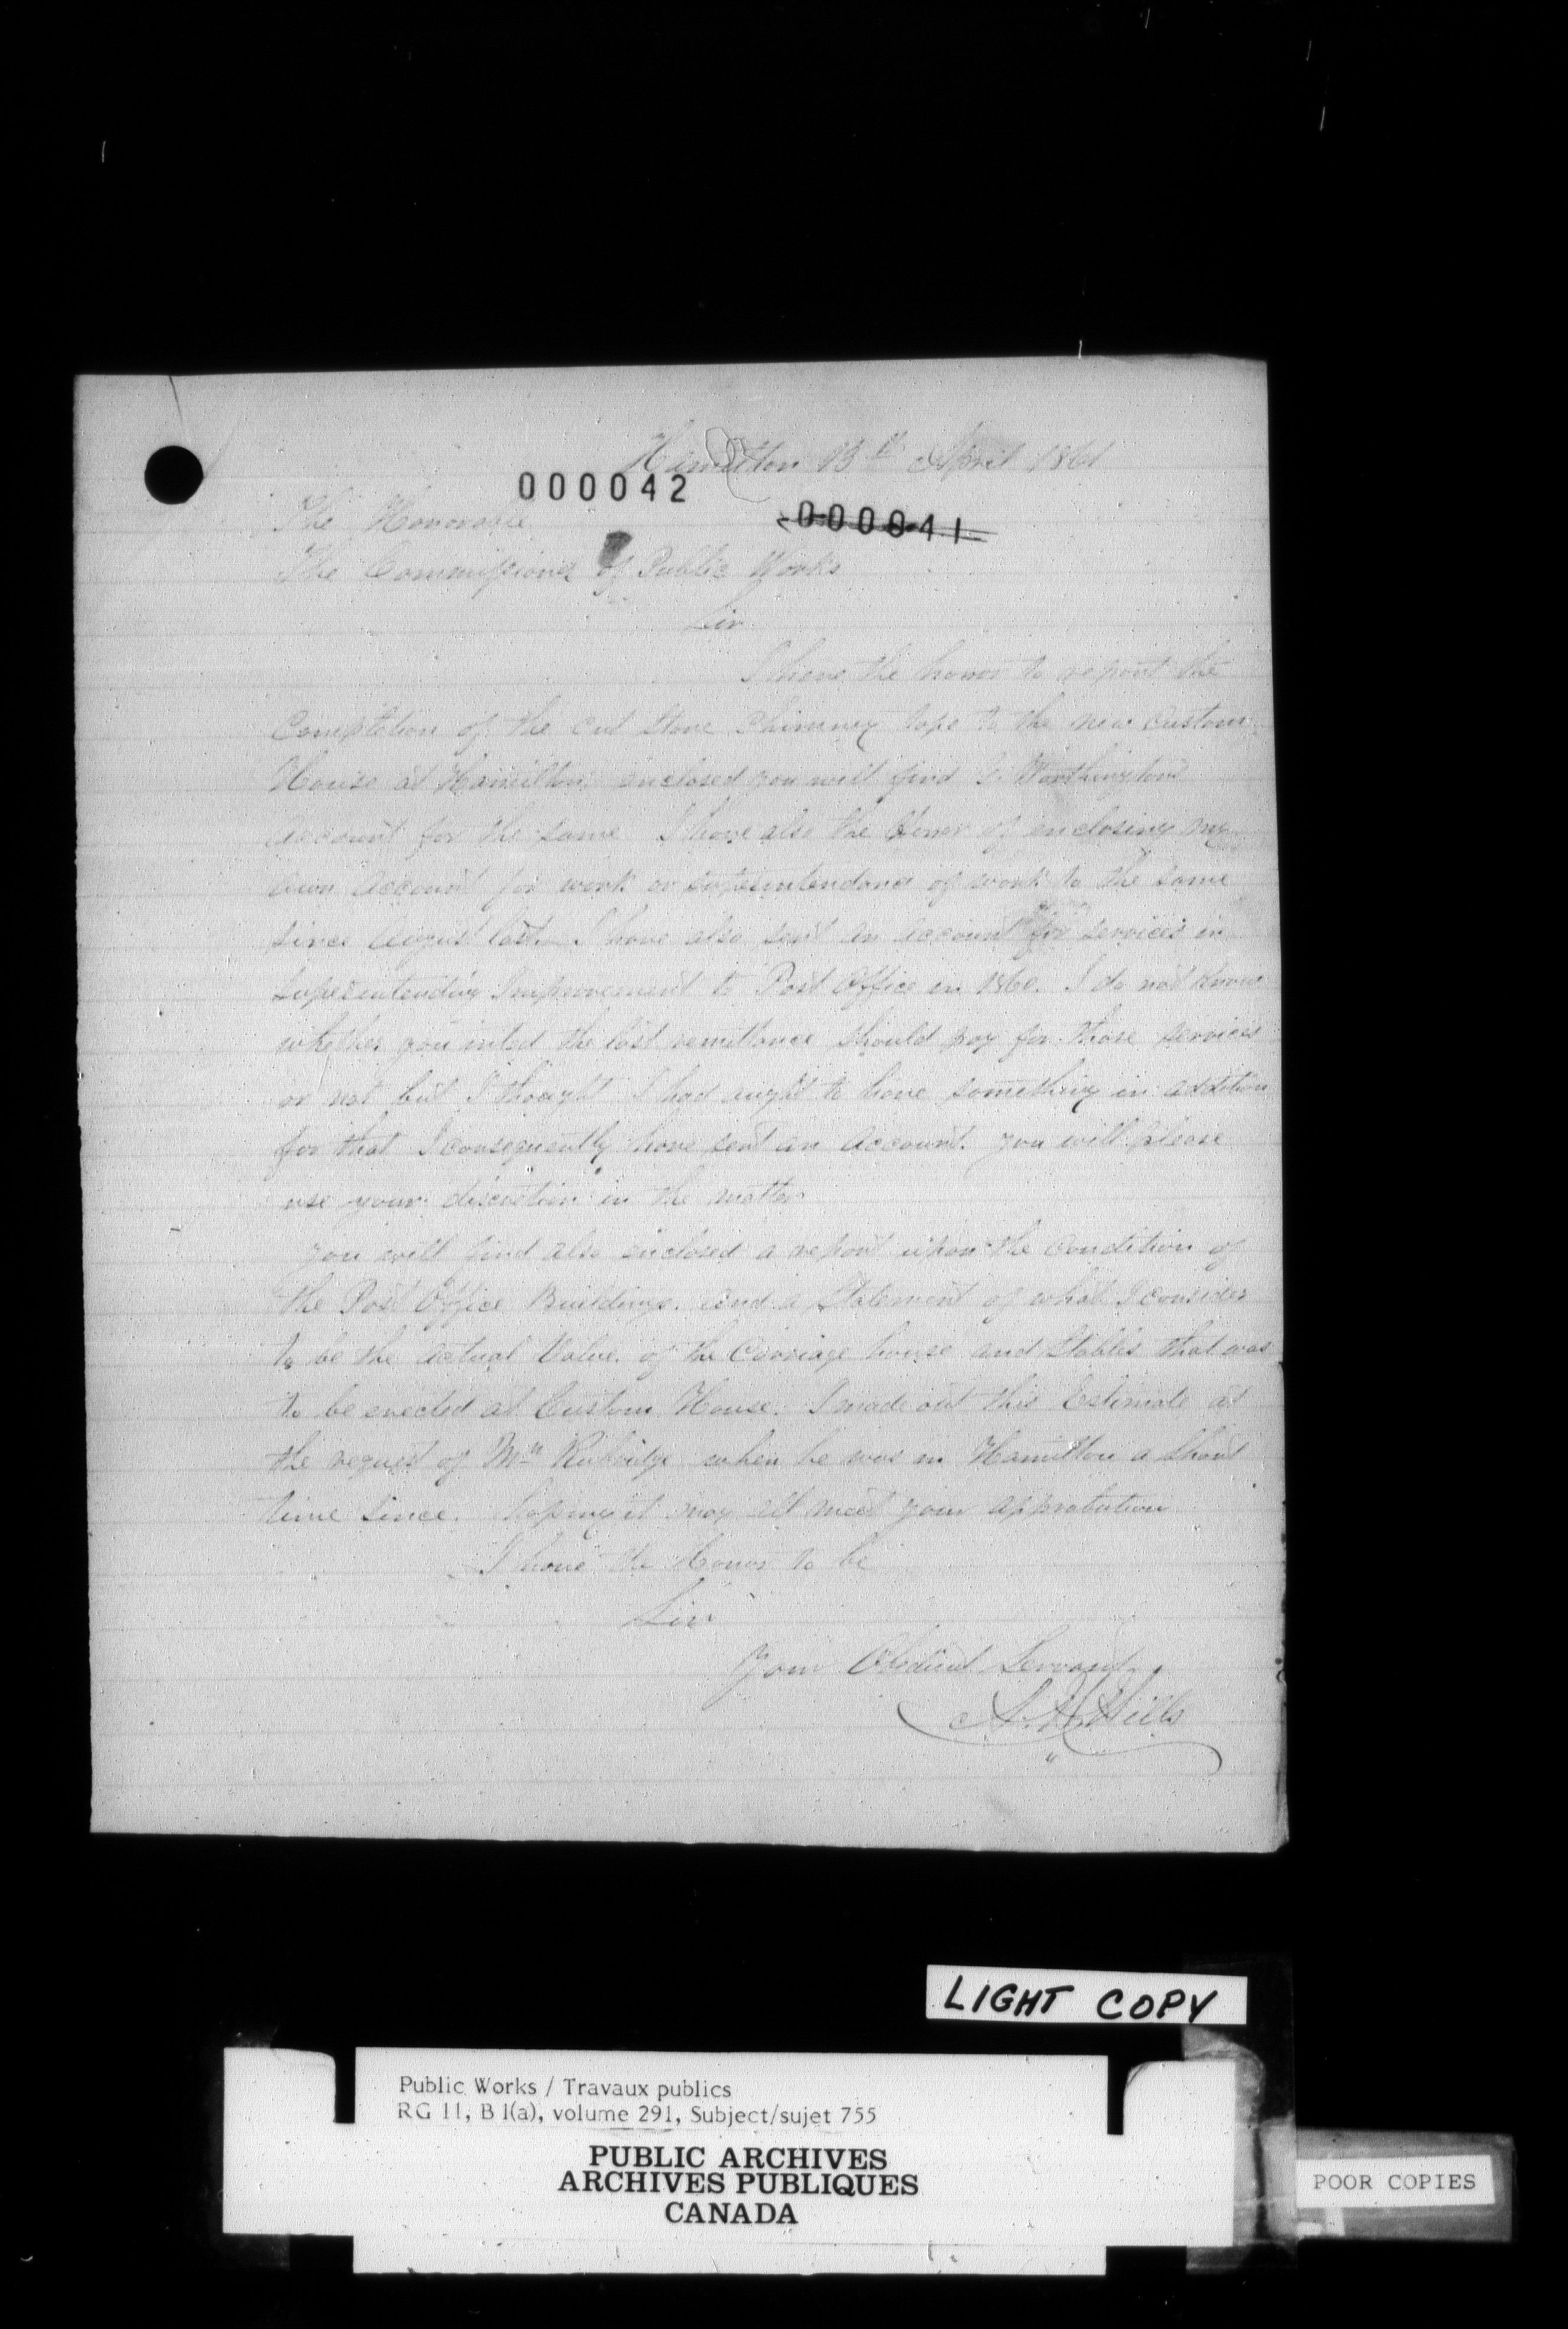 Hamilton 13th April 1861
000042
000041
The Honorable
The Commissioner of Public Works
Sir
I have the honor to report the
Completion of the Cut Stone Chimney tops to the new Custom
House at Hamilton, enclosed you will find Worthingtons
Account for the same I have also the Honor of enclosing my
own Account for work or superintendance of work to the same
since August last. I have also sent an Account for services in
Superintending Improvement to Post Office in 1860. I do not know
whether you inted the last remittance should pay for those services
or not but I thought I had aught to have something in addition
for that I consequently have sent an Account. you will please
use your discretion in the matter
you will find also enclosed a report upon the Condition of
the Post Office Buildings. and a Statement of what I consider
to be the actual Value of the Carriage house and Stables that was
to be erected at Custom House. I made out this Estimate at
the request of Mr Rubidge when he was in Hamilton a short
time since. hoping it may all meet your approbation
I have the Honor to be
Sir
Your Obedient Servant
A. H. Hills
LIGHT COPY
Public Works / Travaux publics
RG 11, B 1(a), volume 291, Subject/sujet 755
PUBLIC ARCHIVES
ARCHIVES PUBLIQUES
CANADA
POOR COPIES